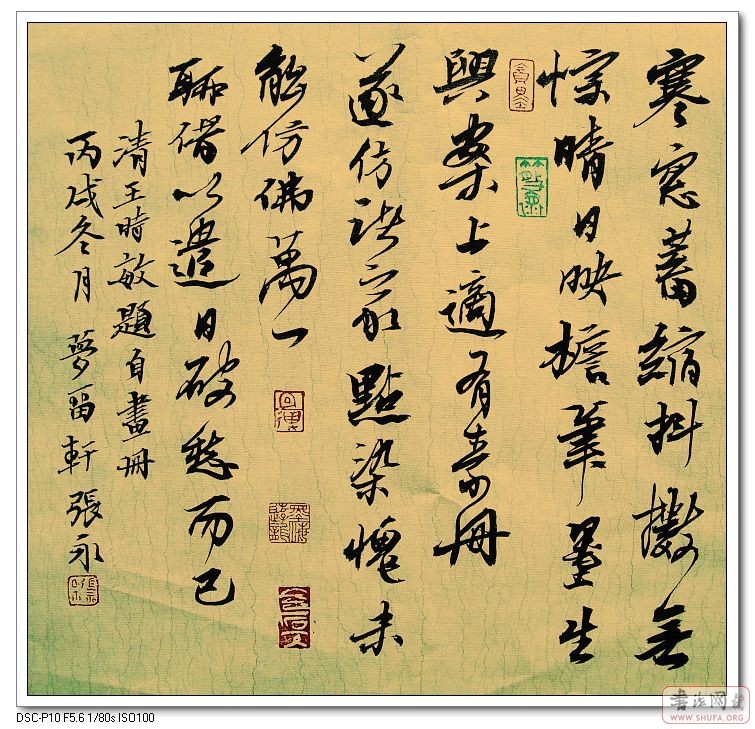 寒窓蓄縮抖擻無
悰晴日映檐筆墨生
興案上適有素冊
遂仿諸家點染愧未
能仿佛萬一
聊借以遣日破愁而已
清王時敏題自畫冊
丙戌冬月 夢留軒 張永
DSC-P10 F5.6 1/80s ISO100
WWW.SHUFA.ORG